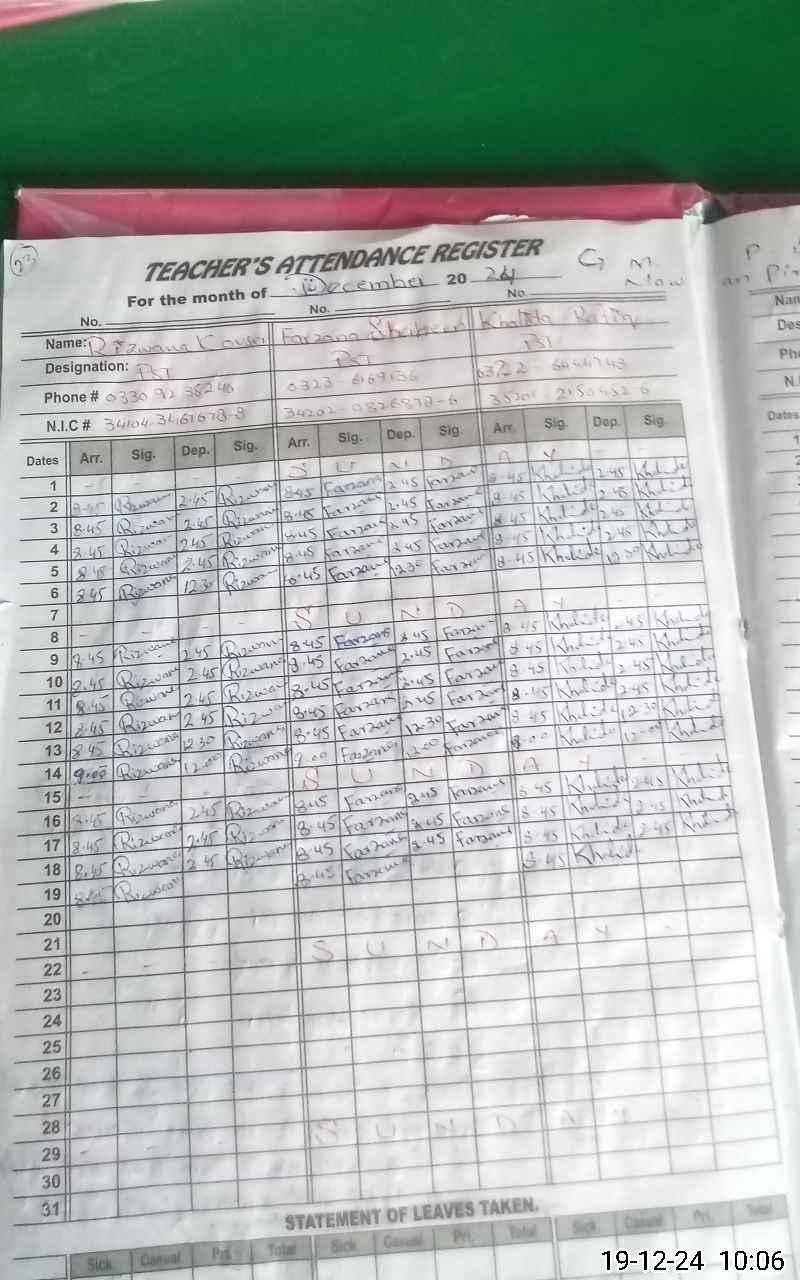 23
TEACHER'S ATTENDANCE REGISTER
G M
For the month of December 20 24
No. No. No
Name: Rizwana Kouser Farzana Shaheen Khalida Rafiq
Designation: PST PST PST
Phone # 0323-6169136
N.I.C #
Dates Arr. Sig. Dep. Sig. Arr. Sig. Dep. Sig. Arr. Sig. Dep. Sig.
1 - - - - S U N D A Y
2 8.45 Rizwana 2.45 Rizwana 8.45 Farzana 2.45 Farzana 8.45 Khalida 2.45 Khalida
3 8.45 Rizwana 2.45 Rizwana 8.45 Farzana 2.45 Farzana 8.45 Khalida 2.45 Khalida
4 8.45 Rizwana 2.45 Rizwana 8.45 Farzana 2.45 Farzana 8.45 Khalida 2.45 Khalida
5 8.45 Rizwana 2.45 Rizwana 8.45 Farzana 2.45 Farzana 8.45 Khalida 2.45 Khalida
6 8.45 Rizwana 12.30 Rizwana 8.45 Farzana 12.30 Farzana 8.45 Khalida 12.30 Khalida
7
8 - - - - S U N D A Y
9 8.45 Rizwana 2.45 Rizwana 8.45 Farzana 2.45 Farzana 8.45 Khalida 2.45 Khalida
10 8.45 Rizwana 2.45 Rizwana 8.45 Farzana 2.45 Farzana 8.45 Khalida 2.45 Khalida
11 8.45 Rizwana 2.45 Rizwana 8.45 Farzana 2.45 Farzana 8.45 Khalida 2.45 Khalida
12 8.45 Rizwana 2.45 Rizwana 8.45 Farzana 2.45 Farzana 8.45 Khalida 2.45 Khalida
13 8.45 Rizwana 12.30 Rizwana 8.45 Farzana 12.30 Farzana 8.45 Khalida 12.30 Khalida
14 9.00 Rizwana 12.00 Rizwana 9.00 Farzana 12.00 Farzana 12.00 Khalida
15 - - - - S U N D A Y
16 8.45 Rizwana 2.45 Rizwana 8.45 Farzana 2.45 Farzana 8.45 Khalida 2.45 Khalida
17 8.45 Rizwana 2.45 Rizwana 8.45 Farzana 2.45 Farzana 8.45 Khalida 2.45 Khalida
18 8.45 Rizwana 2.45 Rizwana 8.45 Farzana 2.45 Farzana 8.45 Khalida 2.45 Khalida
19 8.45 Rizwana 8.45 Farzana 8.45 Khalida
20
21
22 - - - - S U N D A Y -
23
24
25
26
27
28
29 - S U N D A Y
30
31
STATEMENT OF LEAVES TAKEN.
Sick. Casual Pri. Total Sick. Casual Pri. Total Sick. Casual Pri. Total
19-12-24 10:06